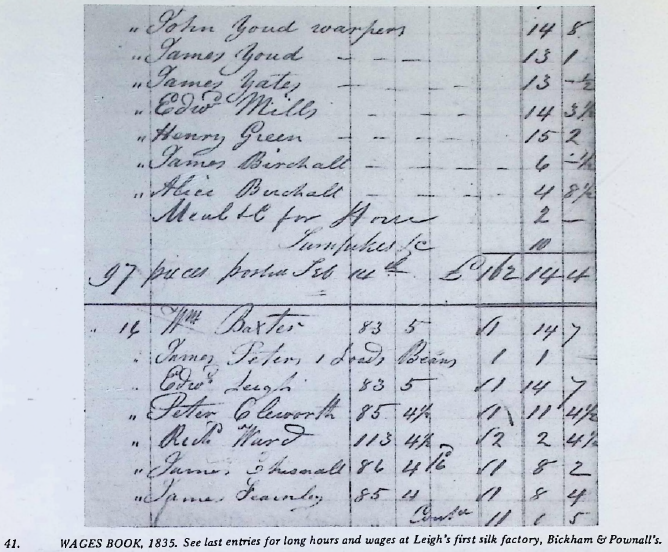 " John Youd warpers 14 8
" James Youd — — — 13 1
" James Yates — — — 13 — ½
" Edwd Mills — — — 14 3½
" Henry Green — — — 15 2
" James Birchall — — — 6 — ½
" Alice Birchall — — — 4 8½
Meal &C for Horse 2 —
Turnpikes &c 10
97 pieces Feb 14th £ 162 14 4
" 16 Wm Baxter 83 5 £1 14 7
" James Peters 1 Loads Beans 1 1 —
" Edwd Leigh 83 5 £1 14 7
" Peter Cleworth 85 4½ £1 11 4½
" Richd Ward 113 4½ £2 2 4½
" James 86 4 £1 8 2
" James Fearnley 85 4 £1 8 4
11 1 5
41. WAGES BOOK, 1835. See last entries for long hours and wages at Leigh's first silk factory, Bickham & Pownall's.